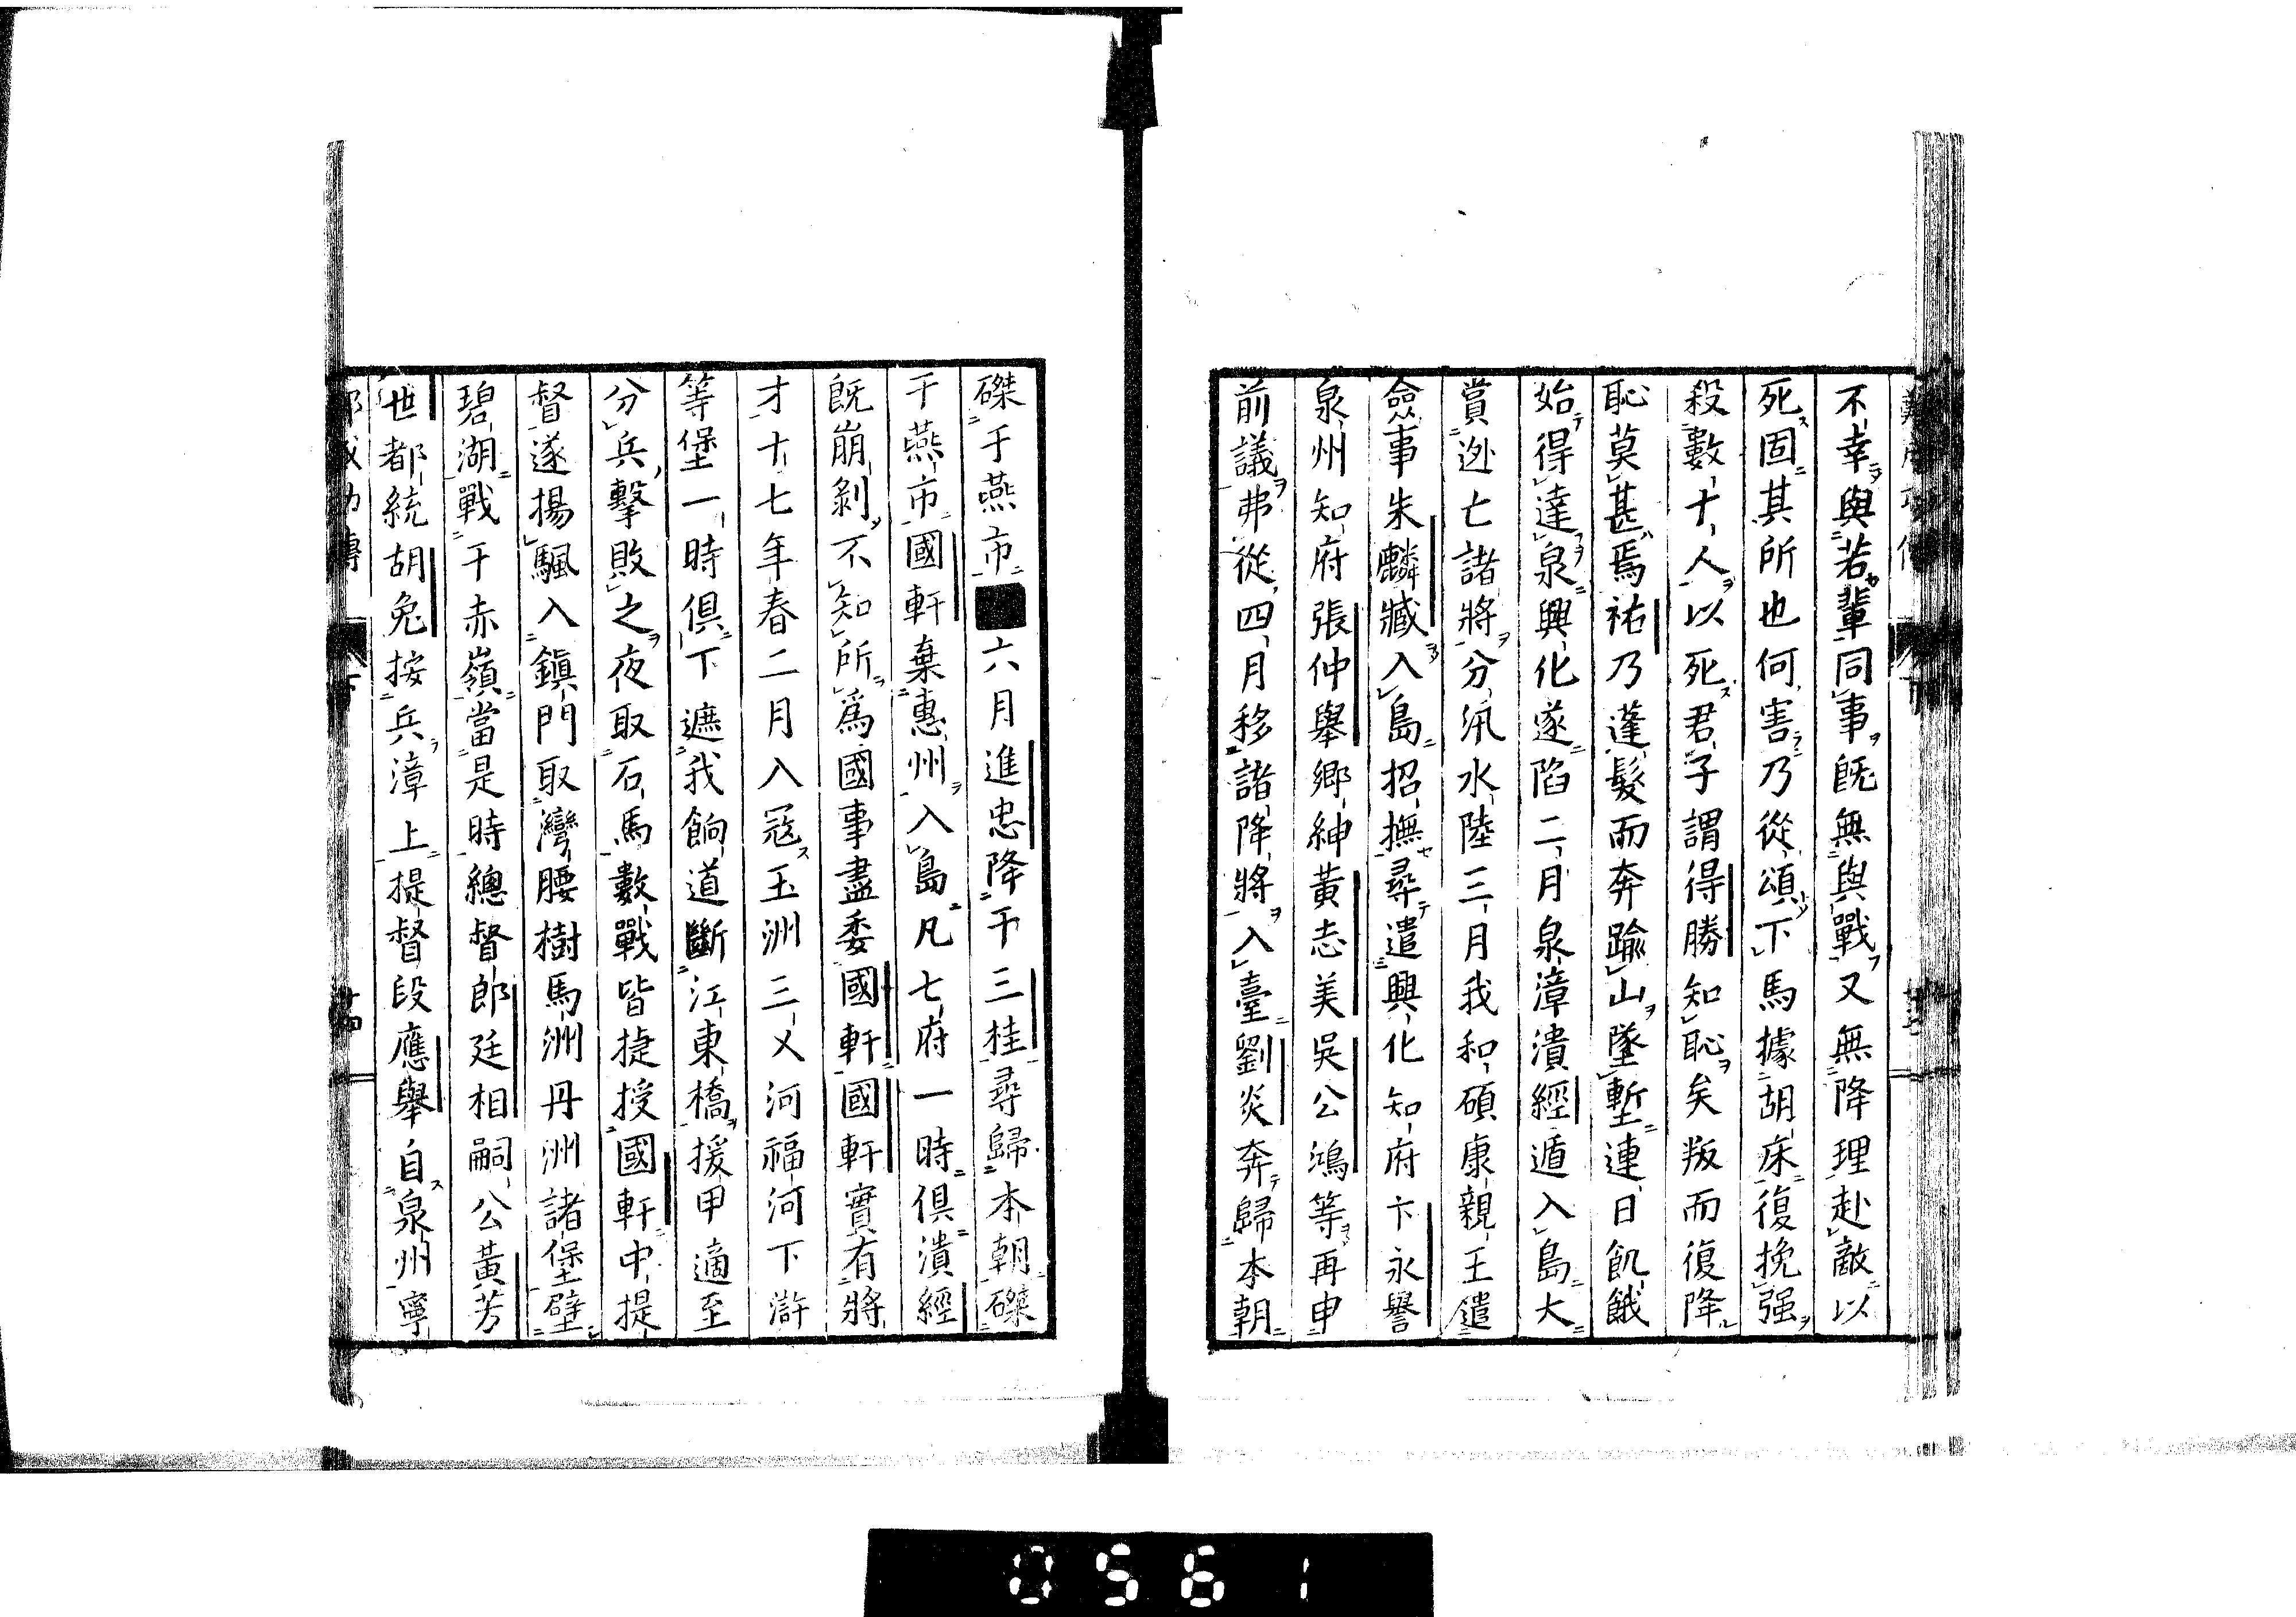 不幸與若輩同事既無與戰又無降理赴敵以
死固其所也何害乃從頌下馬據胡床復挽强
殺數十人以死君子謂得勝知恥矣叛而復降
恥莫甚焉祐乃蓬髮而奔踰山墜塹連日飢餓
始得達泉興化遂陷二月泉漳潰經遁入島大
賞迯亡諸將分汛水陸三月我和碩康親王遣
僉事朱麟臧入島招撫尋遣興化知府卞永譽
泉州知府張仲舉鄉紳黃志美吳公鴻等再申
前議弗從四月移諸降將入臺劉炎奔歸本朝
磔于燕市■六月進忠降于三桂尋歸本朝磔
于燕市國軒棄惠州入島凡七府一時俱潰經
既崩剝不知所爲國事盡委國軒國軒實有將
才十七年春二月入冦玉洲三乂河福河下滸
等堡一時俱下遮我餉道斷江東橋援甲適至
分兵擊敗之夜取石馬數戰皆捷授國軒中提
督遂揚颿入鎭門取灣腰樹馬洲丹洲諸堡壁
碧湖戰于赤嶺當是時總督郎廷相嗣公黃芳
世都統胡兔按兵漳上提督段應舉自泉州寧
鄭成功傳 下 十四